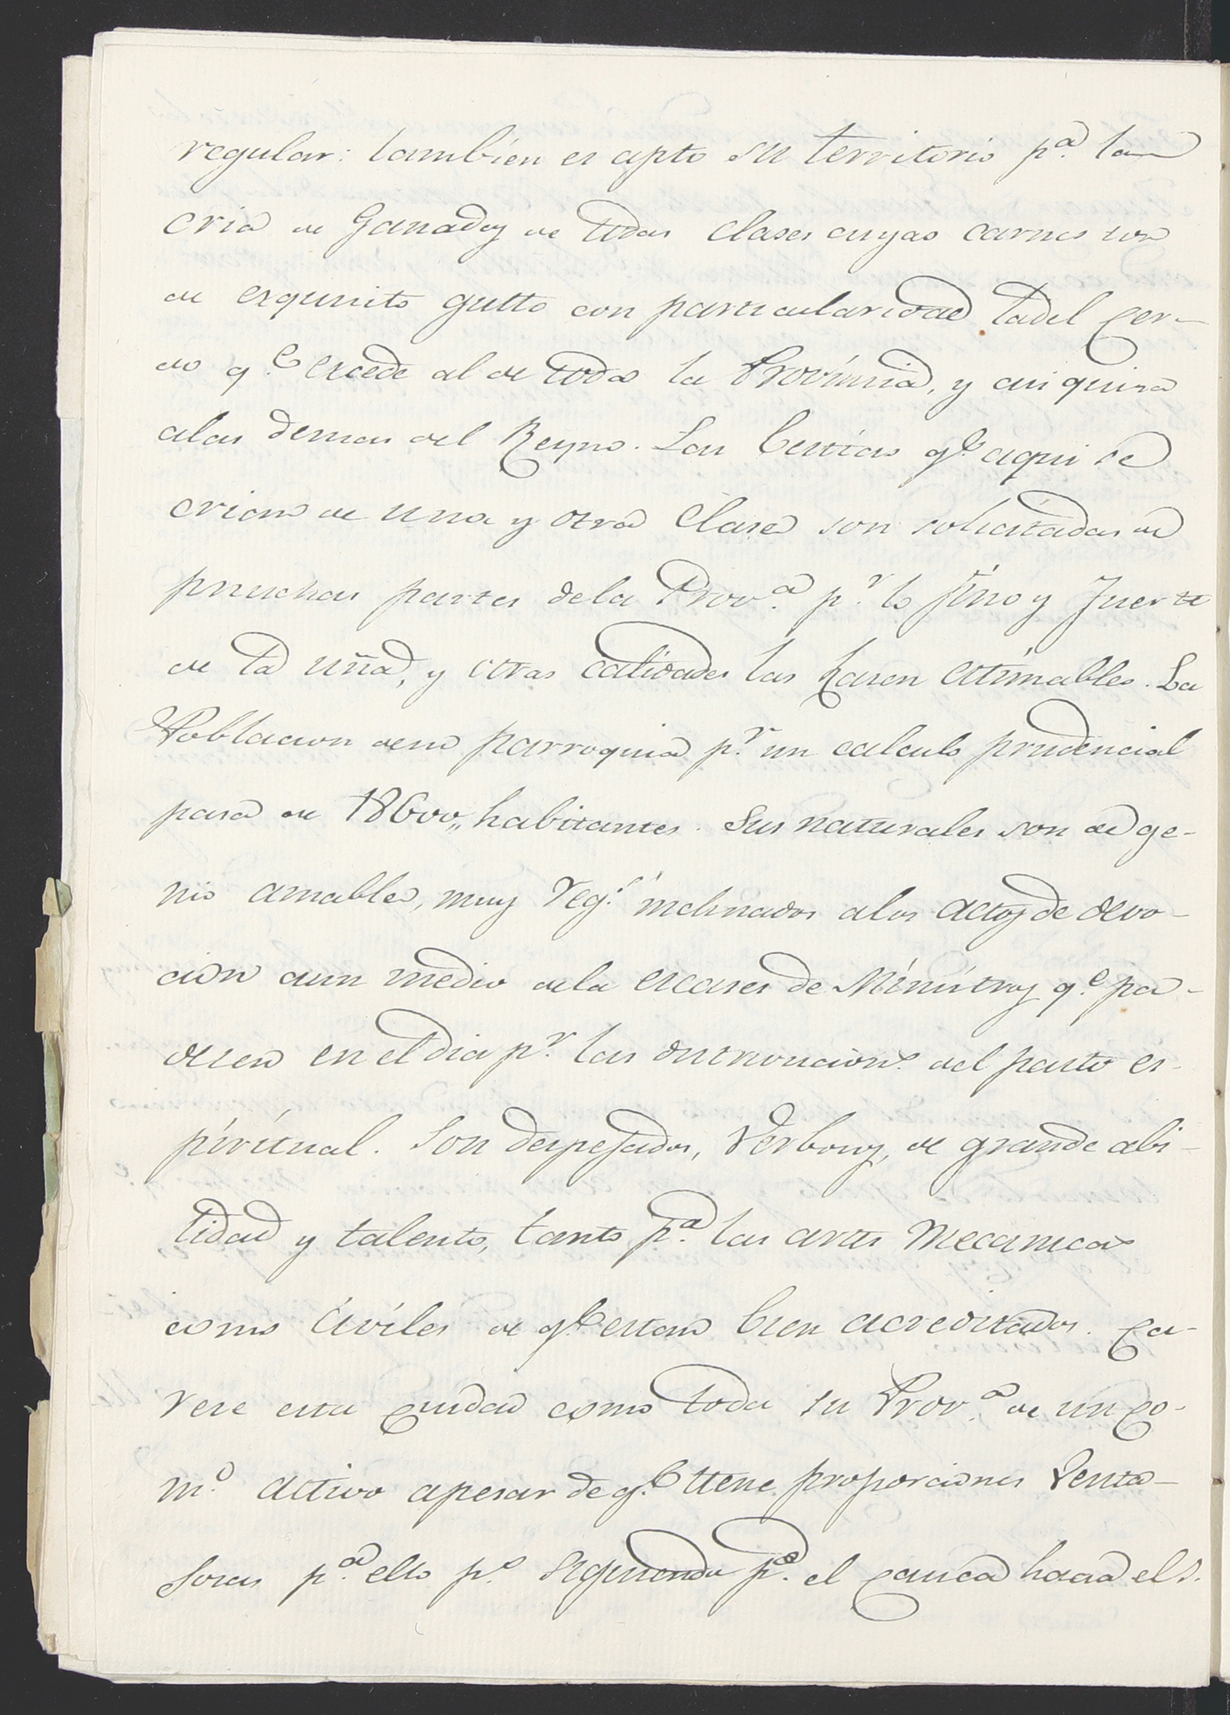 regular: tambien es apto su territorio p.ª la
cria de Ganados de todas clases cuyas carnes son
de exquisito gusto con particularidad la del Cer-
do q.e excede al de toda la Provincia, y aun quiza
alas demas del Reyno. Las bestias q.e aqui se
crian de una y otra clase son solicitadas de
muchas partes dela Prov.ª p.r lo fino y fuerte
de la uña, y otras calidades las hasen estimables. La
Poblacion desu parroquia p.r un calculo prudencial
pasa de 18600,, habitantes. Sus naturales son de ge-
nio amable, muy reg.s inclinados alos actos de devo-
cion aun medio dela escases de Ministros q.e pa-
desen en el dia p.r las distribucion.s del pasto es-
piritual. Son despejados, Verbosos, de grande abi-
lidad y talento, tanto p.ª las artes Mecanicas
como Civiles de q.e estan bien acreditados. Ca-
rese esta Ciudad como toda su Prov.ª de un Co-
m.o activo apesar de q.e tiene proporciones Venta-
josas p.ª ello p.s siguiendo p.r el Cauca hacia el S.